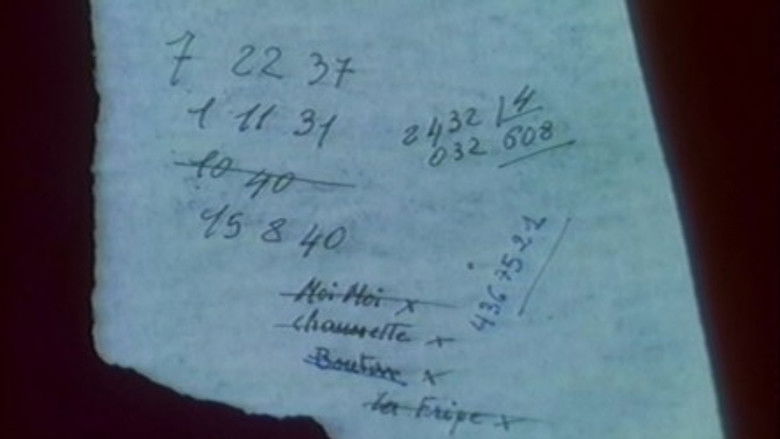 7 22 37
1 11 31
10 40
15 8 40
2432 4
032 608
43675221
Moi Moi x
chaumette x
x
La Fripe x